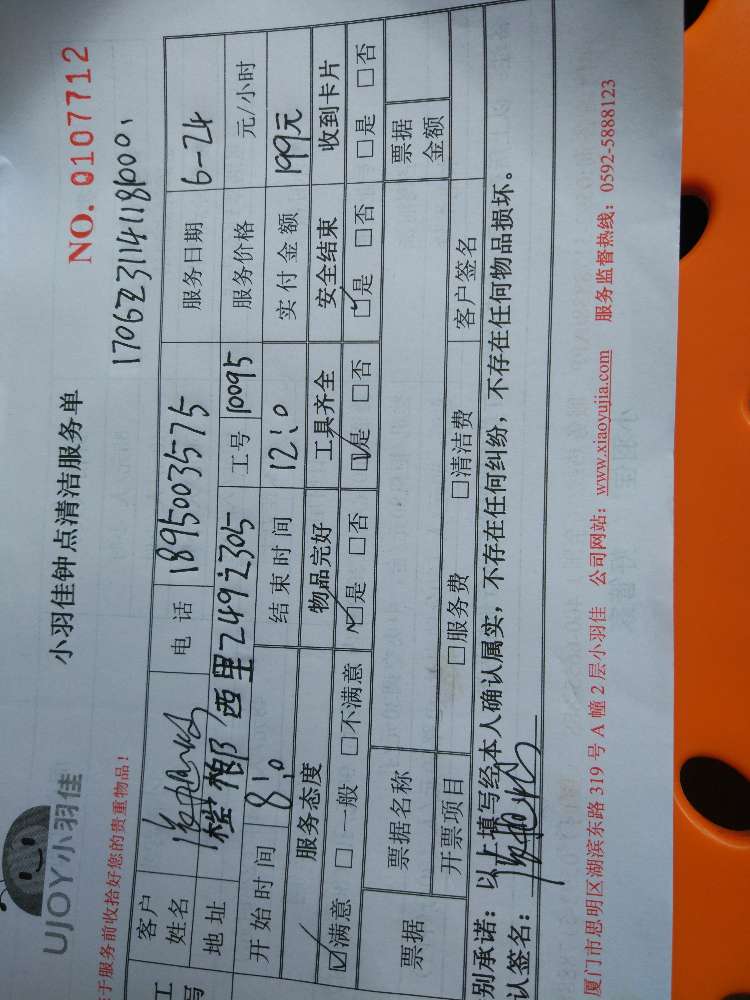 UJOY小羽佳
小羽佳钟点清洁服务单
NO. 0107712
于服务前收拾好您的贵重物品!
客户姓名 电 话 1895003575 服务日期 6-24
地址 西里249之305 工号 10095 服务价格 元/小时
开始时间 8:0 结束时间 12:0 实付金额 199元
服务态度 物品完好 工具齐全 安全结束 收到卡片
☑满意 □ 一般 □不满意 ☑是 □否 ☑是 □否 ☑是 □否 □是 □否
票据 票据名称 票据金额
开票项目 □服务费 □清洁费 客户签名
别承诺:以上填写经本人确认属实,不存在任何纠纷,不存在任何物品损坏。
认签名:
厦门市思明区湖滨东路 319 号 A 幢 2 层小羽佳 公司网站:www.xiaoyujia.com 服务监督热线:0592-5888123